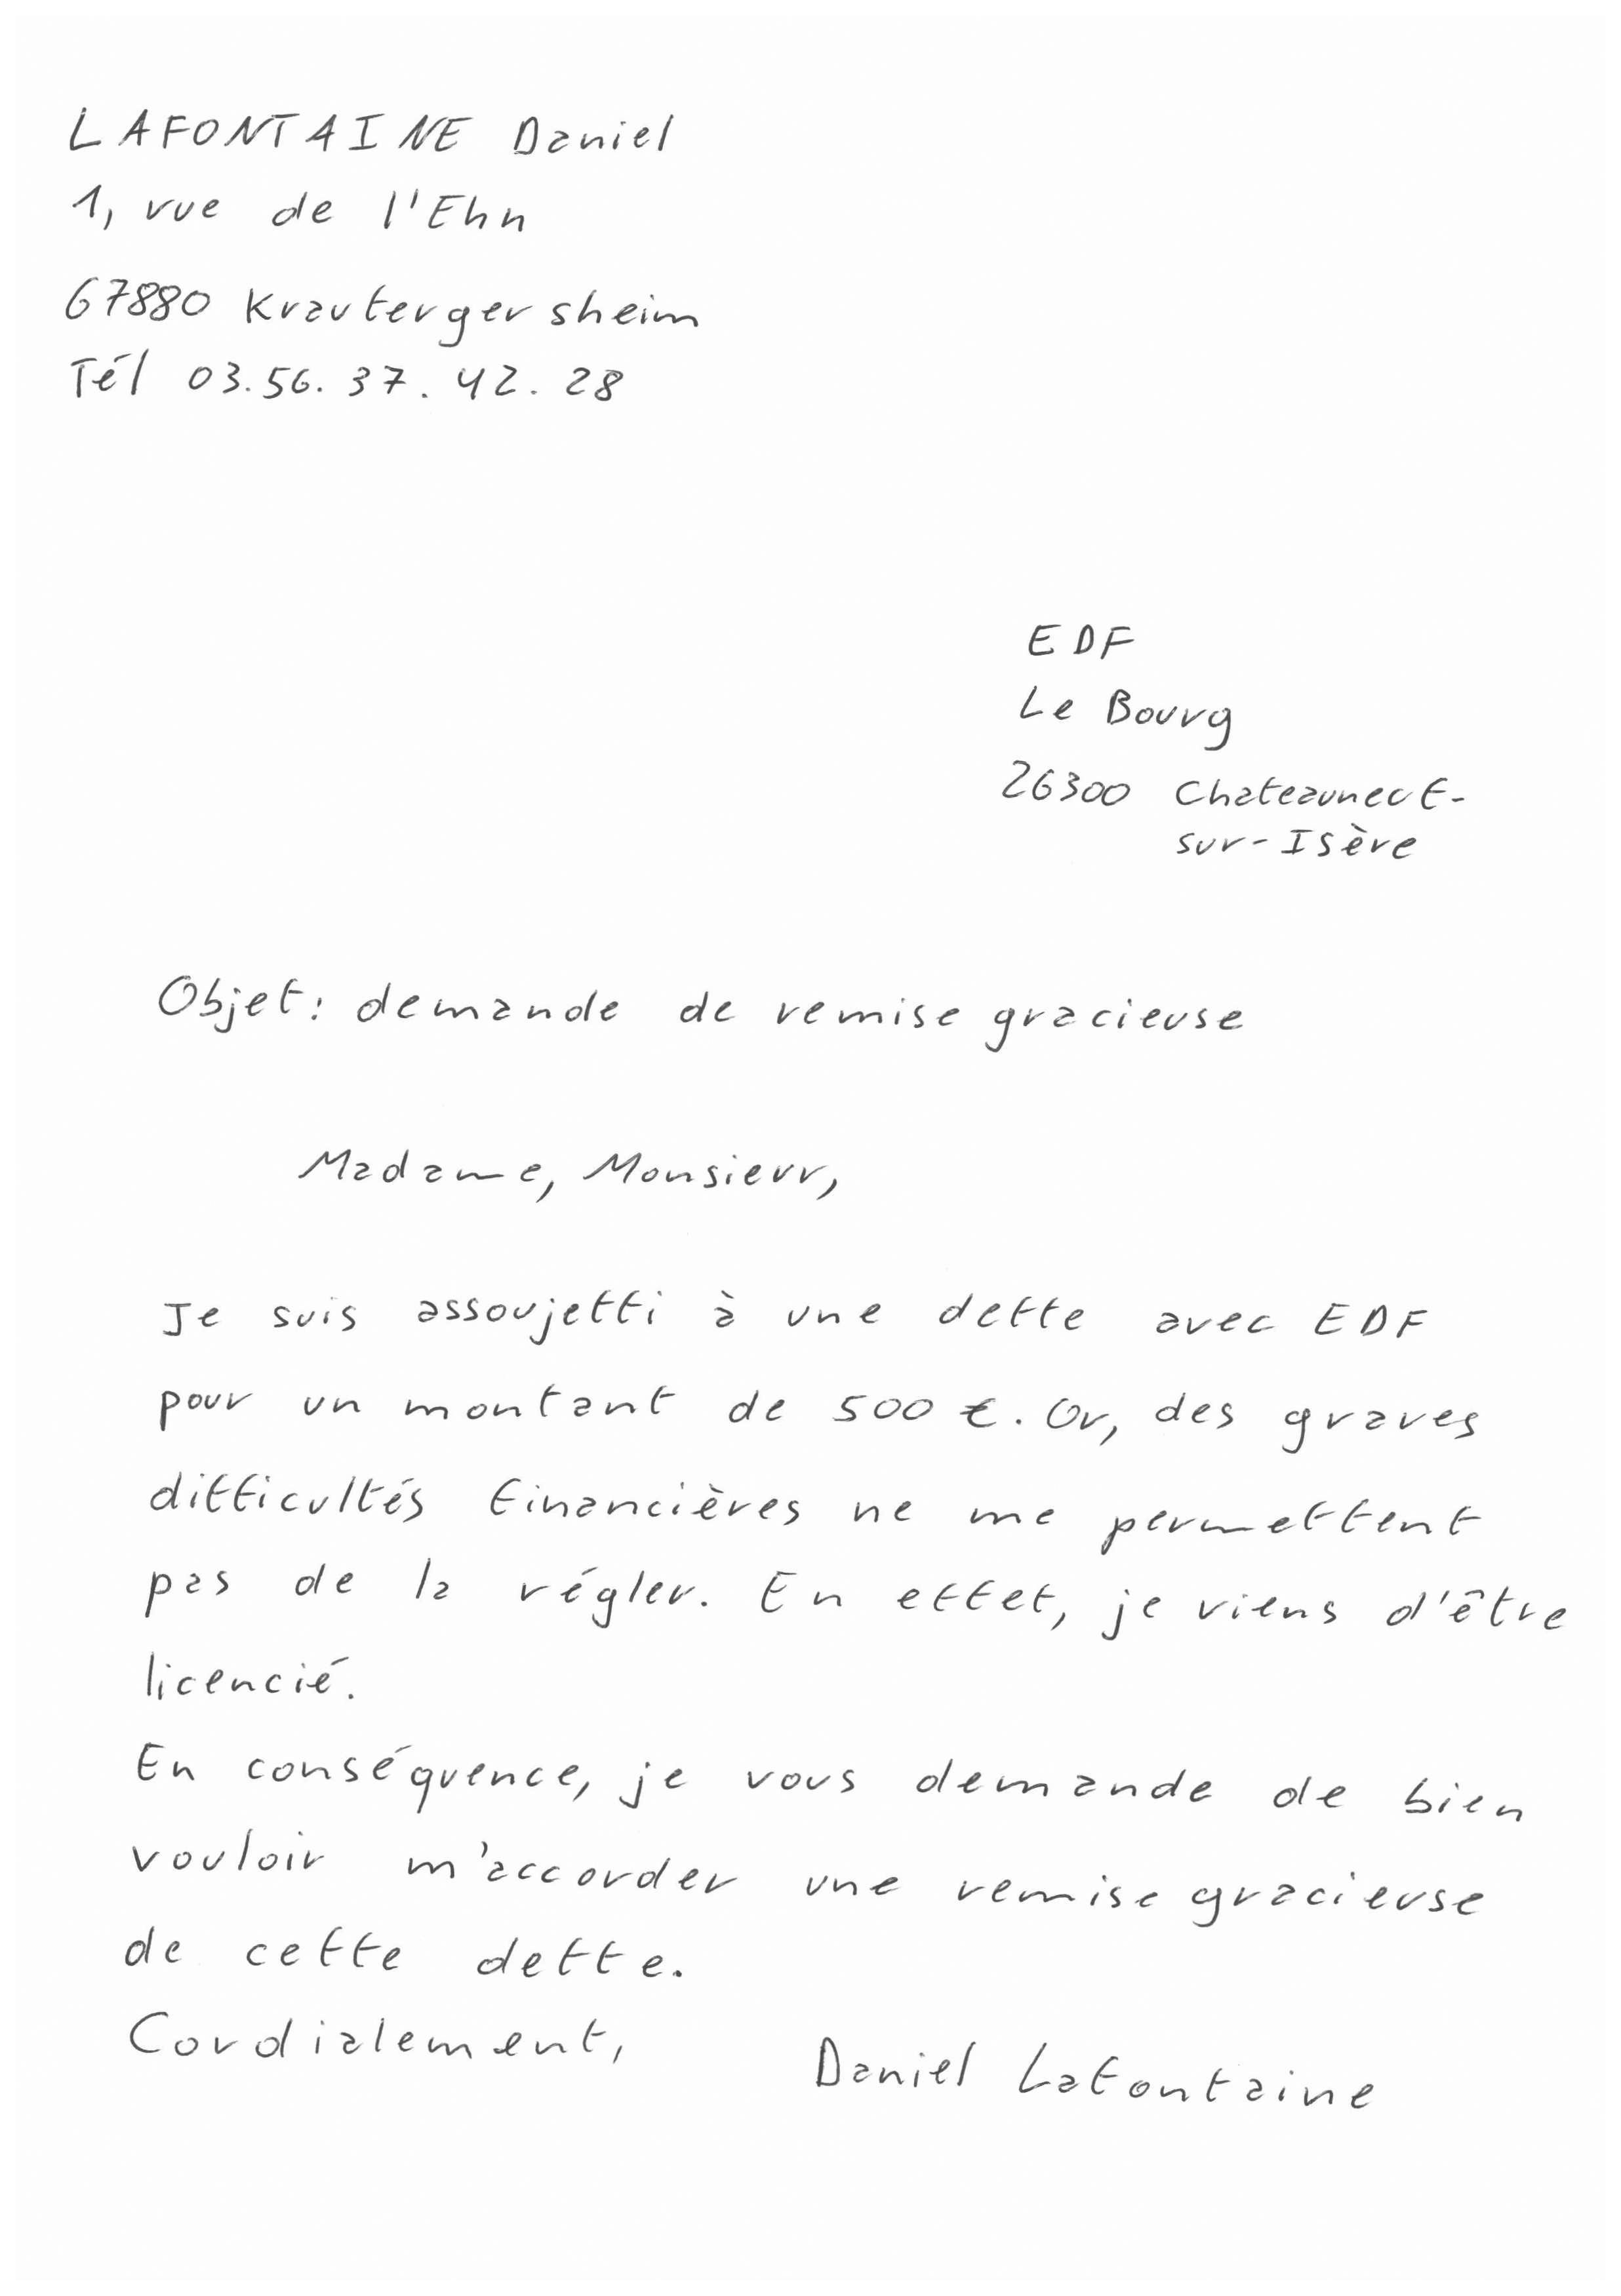 LAFONTAINE Daniel
1, rue de l'Ehn
67880 Krautergersheim
Tél 03.56.37.42.28
EDF
Le Bourg
26300 Chateauneuf-
sur-Isère
Objet: demande de remise gracieuse
Madame, Monsieur,
Je suis assoujetti à une dette avec EDF
pour un montant de 500 €. Or, des graves
difficultés financières ne me permettent
pas de la régler. En effet, je viens d'être
licencié.
En conséquence, je vous demande de bien
vouloir m'accorder une remise gracieuse
de cette dette.
Cordialement,
Daniel Lafontaine